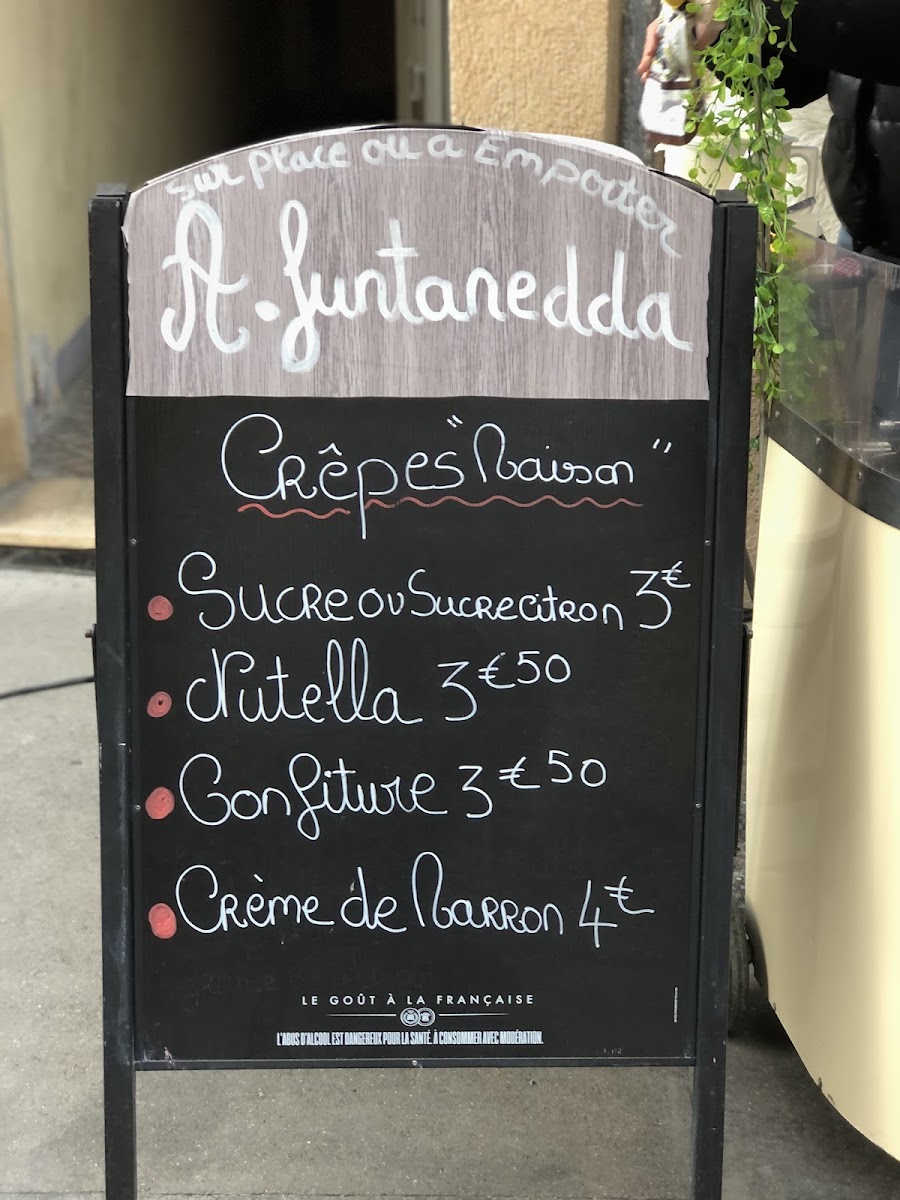 Sur place ou a Emporter
A. Funtanedda
Crêpes "Maison"
Sucre ou Sucre citron 3€
Nutella 3€50
Confiture 3€50
Crème de Marron 4€
LE GOÛT À LA FRANÇAISE
L'ABUS D'ALCOOL EST DANGEREUX POUR LA SANTÉ. À CONSOMMER AVEC MODÉRATION.